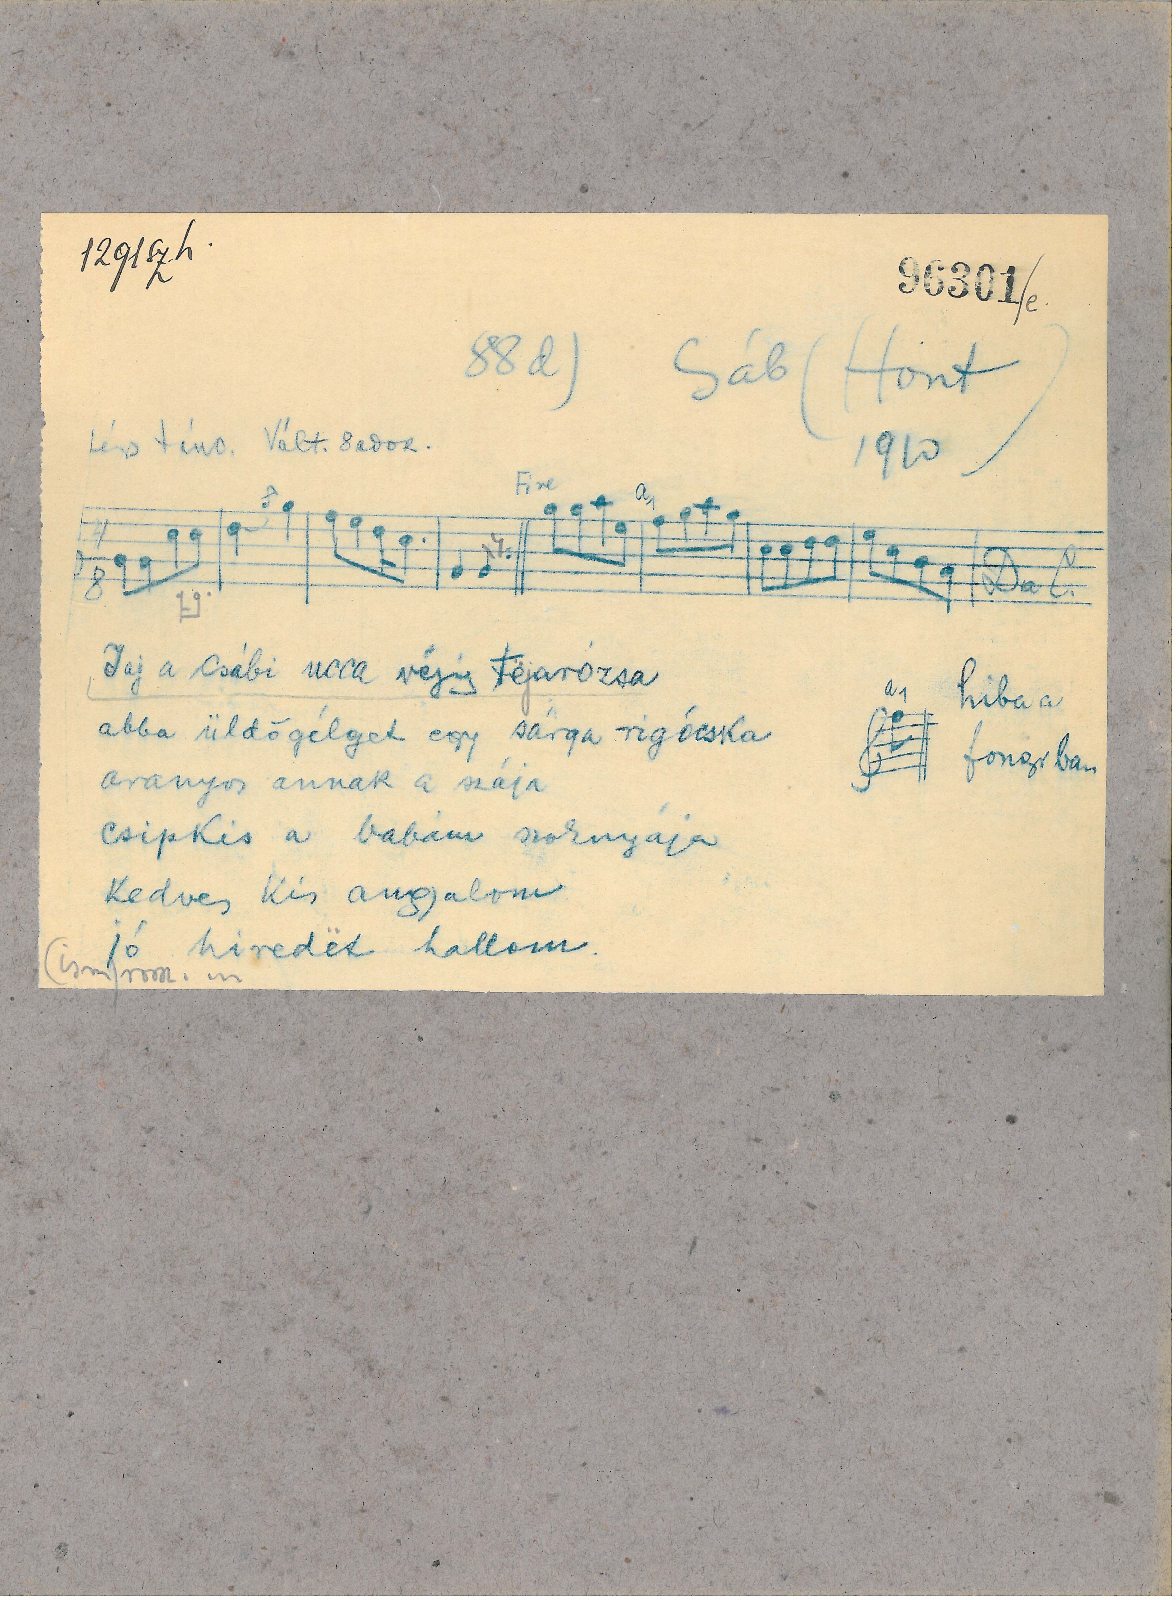 1291 szh.
96301/e.
88d) Sáb (Hont
1910
tánc. Vált. 8adok.
Fine
a1
4
8
Da C.
Jaj a Csábi ucca végig Fejarózsa
abba üldögélget egy sárga rigócska
aranyos annak a szája
csipkis a babám szoknyája
Kedves kis angyalom
jó hiredët hallom.
a1
hiba a
fongrban
(ism)